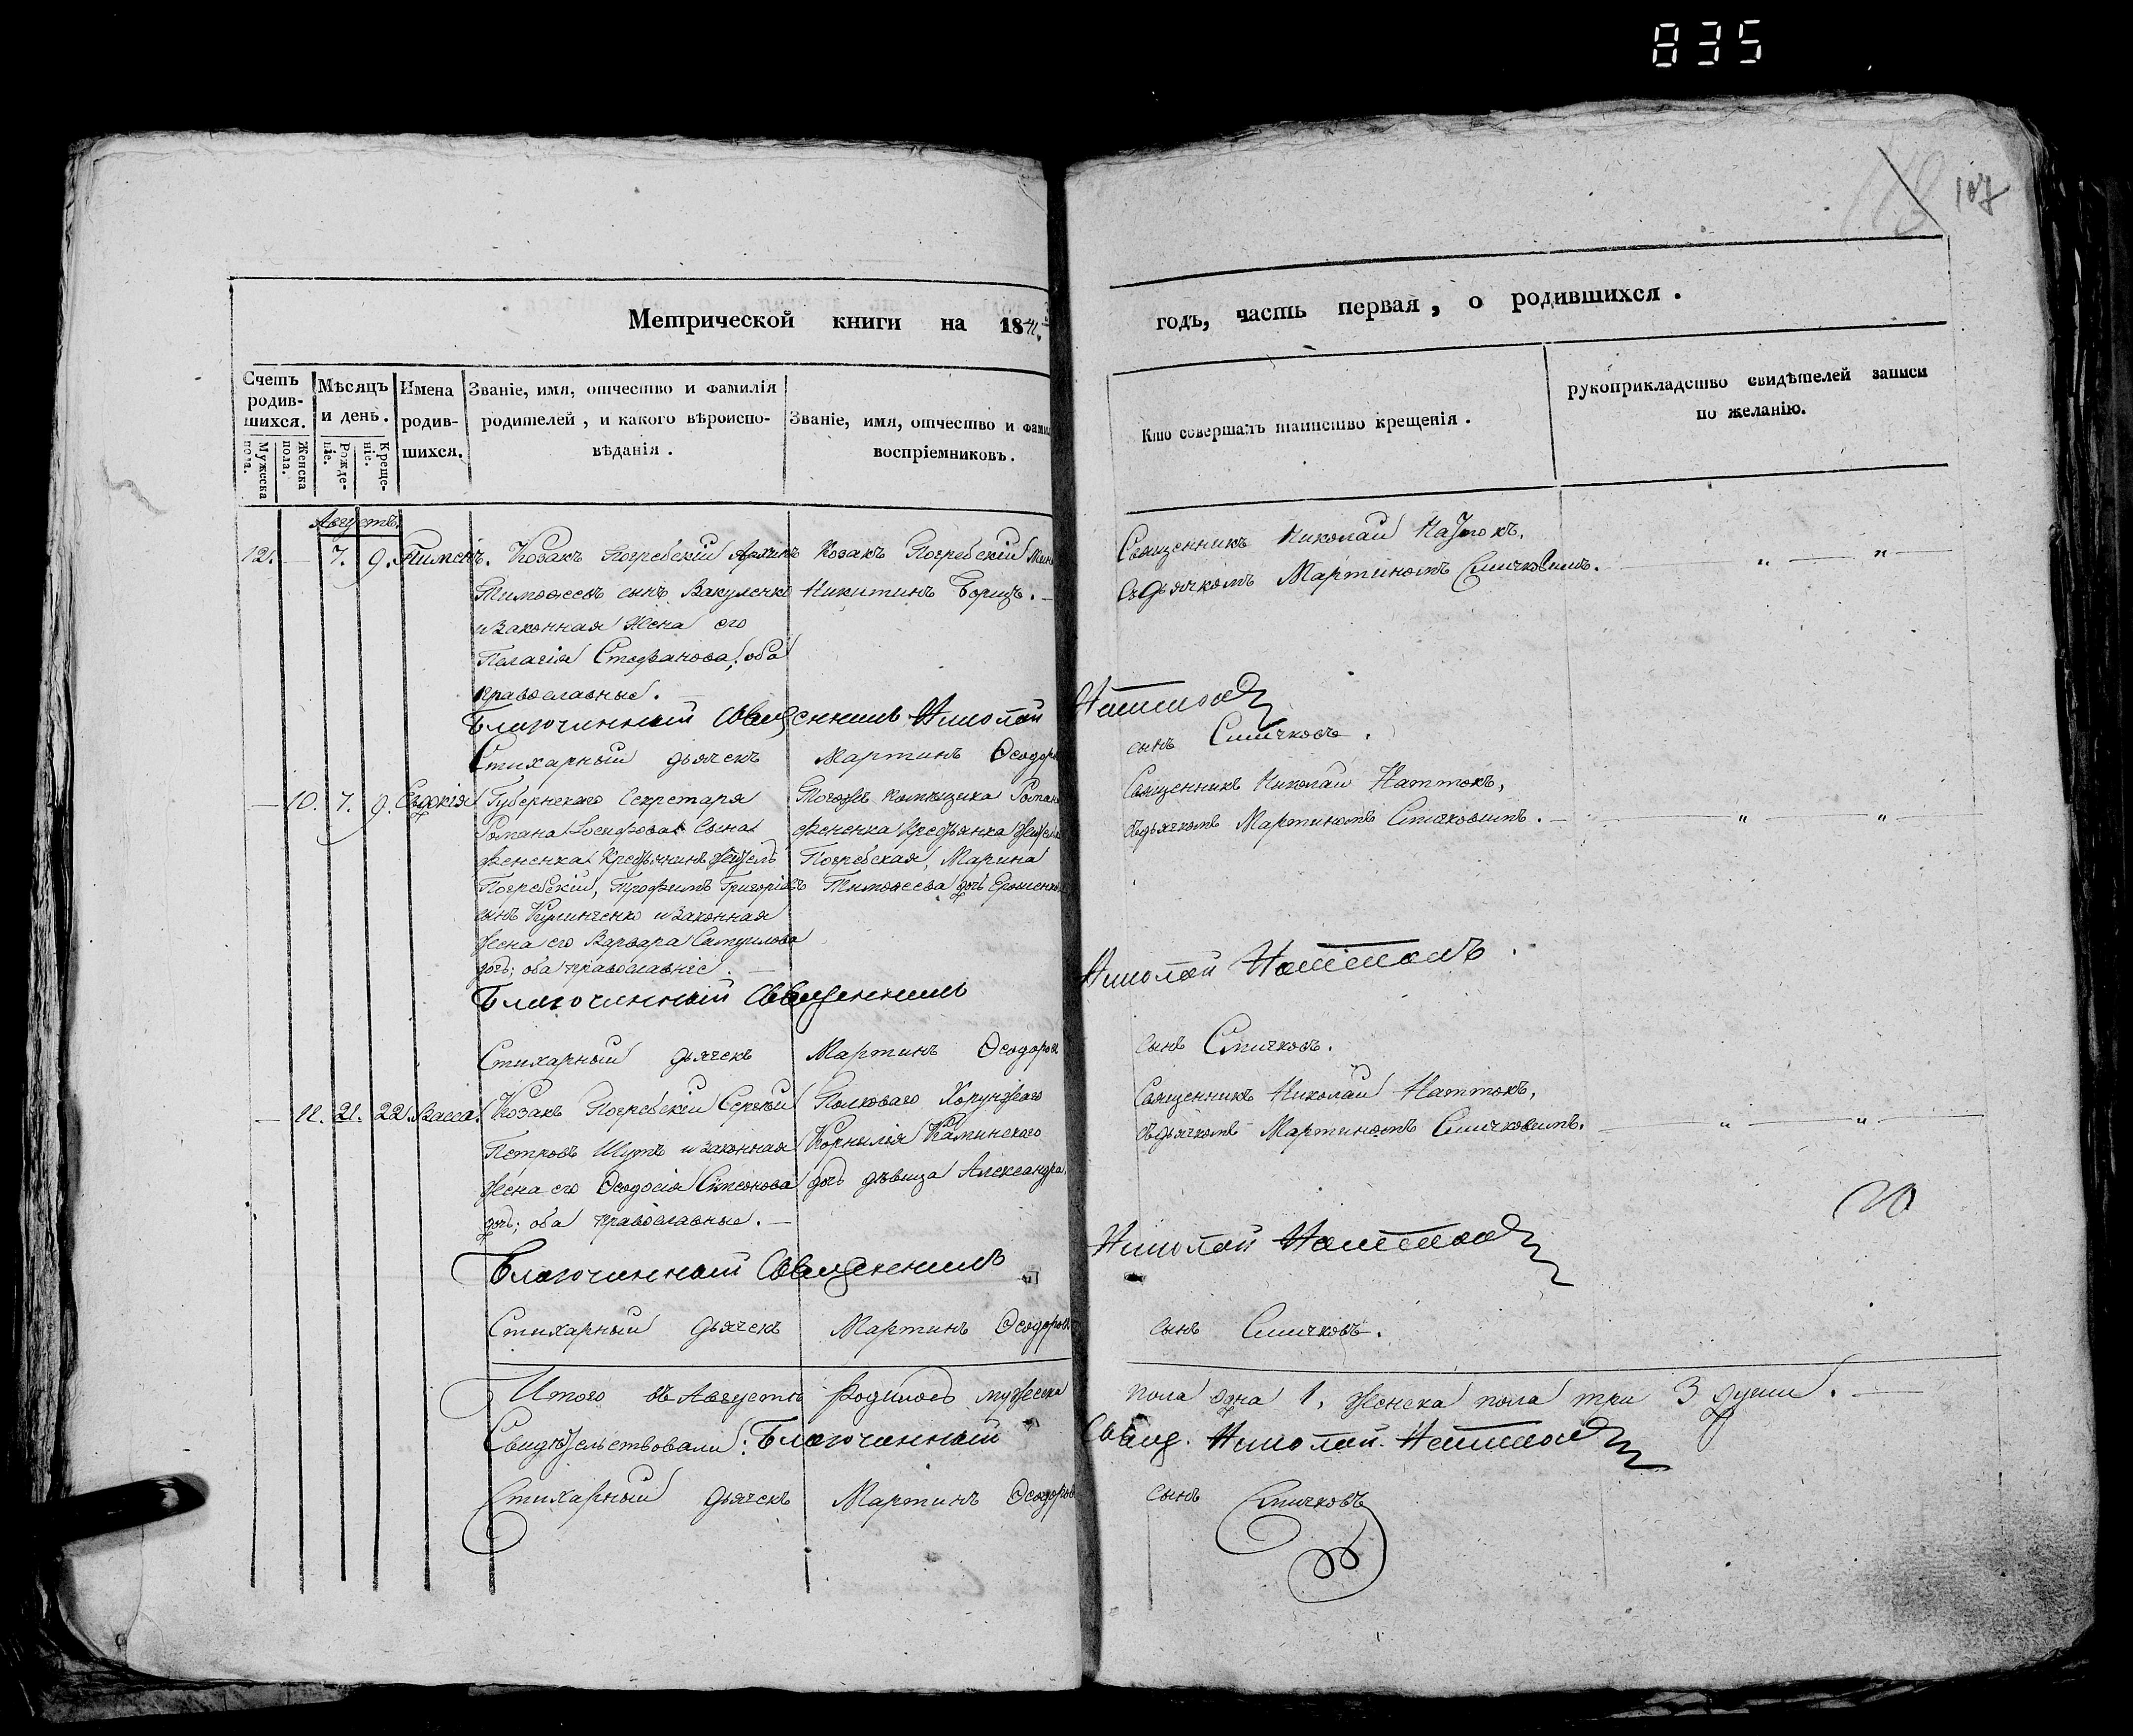 835
107
Метрической книги на 1841
годъ, часть первая, о родившихся.
Счетъ родив-шихся.
Мужеска пола.
Женска пола.
Мѣсяцъ и день.
Рожде-ніе.
Креще-ніе.
Имена родив-шихся.
Званіе, имя, отчество и фамилія
родителей, и какого вѣроиспо-
вѣданія.
Званіе, имя, отчество и фами
воспріемниковъ.
Кто совершалъ таинство крещенія.
рукоприкладство свидѣтелей записи
по желанію.
Августъ.
12. — 7. 9. Пименъ. Козакъ Погребскій
Тимофеевъ сынъ Вакуленко
и законная жена его
Пелагія Стефанова; оба
православные. —
Козакъ Погребскій
Никитинъ Борщъ. —
Священникъ Николай Натток​ъ,
съ дьячкомъ Мартиномъ Смичковимъ. — " — " —
Благочинный Священникъ Николай Наттокъ
Стихарный дьячекъ Мартинъ Ѳеодоро
сынъ Смичковъ.
— 10. 7. 9. Евдокія Губернскаго Секретаря
Романа Іосифова Сына
Фененка Крестьянинъ житель
Погребскій, Трофимъ Григоріевъ
сынъ и законная
жена его Варвара Самуилова
дочь; оба православніе. —
Тогожъ помѣщика Рома
Фененка Крестьянка жител
Погребская, Марина
Тимофеева дочь Ерошенко
Священникъ Николай Наттокъ,
съ дьячкомъ Мартиномъ Смичковимъ. — " — " —
Благочинный Священникъ Николай Наттокъ.
Стихарный дьячекъ Мартинъ Ѳеодоров
сынъ Смичковъ.
— 11. 21. 22. Васса. Козакъ Погребскій Сергѣй
Петровъ Шутъ и законная
жена его Ѳеодосія Симеонова
дочь; оба православные. —
Полковаго Хорунжого
Корнилія Каминского
дочь дѣвица Александра.
Священникъ Николай Наттокъ,
съ дьячкомъ Мартиномъ Смичковимъ. — " — " —
Благочинный Священникъ Николай Наттокъ
Стихарный дьячекъ Мартинъ Ѳеодоров
сынъ Смичковъ.
Итого въ Августѣ родилось мужеска пола одна 1, женска пола три 3 души. —
Свидѣтельствовали: Благочинный Свящ. Николай Наттокъ
Стихарный дьячекъ Мартинъ Ѳеодоров
сынъ Смичковъ